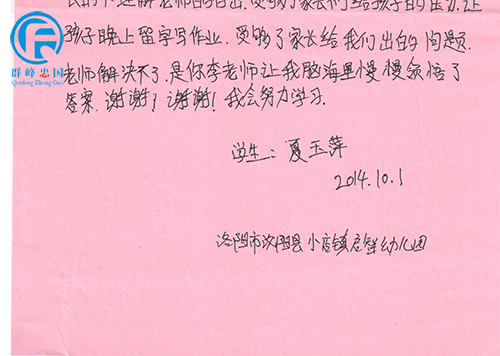 孩子晚上留字写作业. 受够了家长给我们出的问题.
群峰忠国
Qunfeng Zhong Guo
老师解决不了, 是你李老师让我脑海里慢慢领悟了
答案. 谢谢! 谢谢! 我会努力学习.
学生: 夏玉萍
2014.10.1
洛阳市汝阳县小店镇启智幼儿园